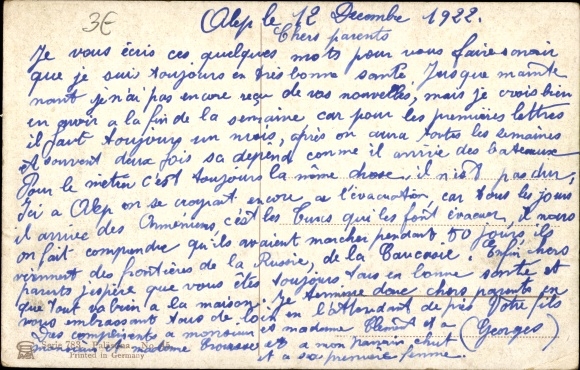 3€
Alep le 12 Decembre 1922.
Chers parents
Je vous écris ces quelques mots pour vous faire savoir
que je suis toujours en très bonne santé. Jusque mainte
nant je n'ai pas encore reçu de vos nouvelles, mais je crois bien
en avoir a la fin de la semaine car pour les premières lettres
il faut toujours un mois, après on aura toutes les semaines
et souvent deux fois sa dépend comme il arrive des bateaux
Pour le métier c'est toujours la même chose, il n'est pas dur,
Ici a Alep on se croyait encore a l'évacuation, car tous les jours
il arrive des Armeniens, c'est les Turcs qui les font évacuer, il nous
on fait comprendre qu'ils avaient marcher pendant 50 jours, ils
viennent des frontières de la Russie, de la Caucasie. Enfin chers
parents j'espère que vous êtes toujours tous en bonne santé et
que tout va bien a la maison. Je termine donc chers parents en
vous embrassant tous de loin en l'attendant de près Votre fils
Des compliments a monsieur et madame Clément et a (Georges)
monsieur et madame et a mon parrain
et a sa première femme.
Serie 783. Palästina No
Printed in Germany